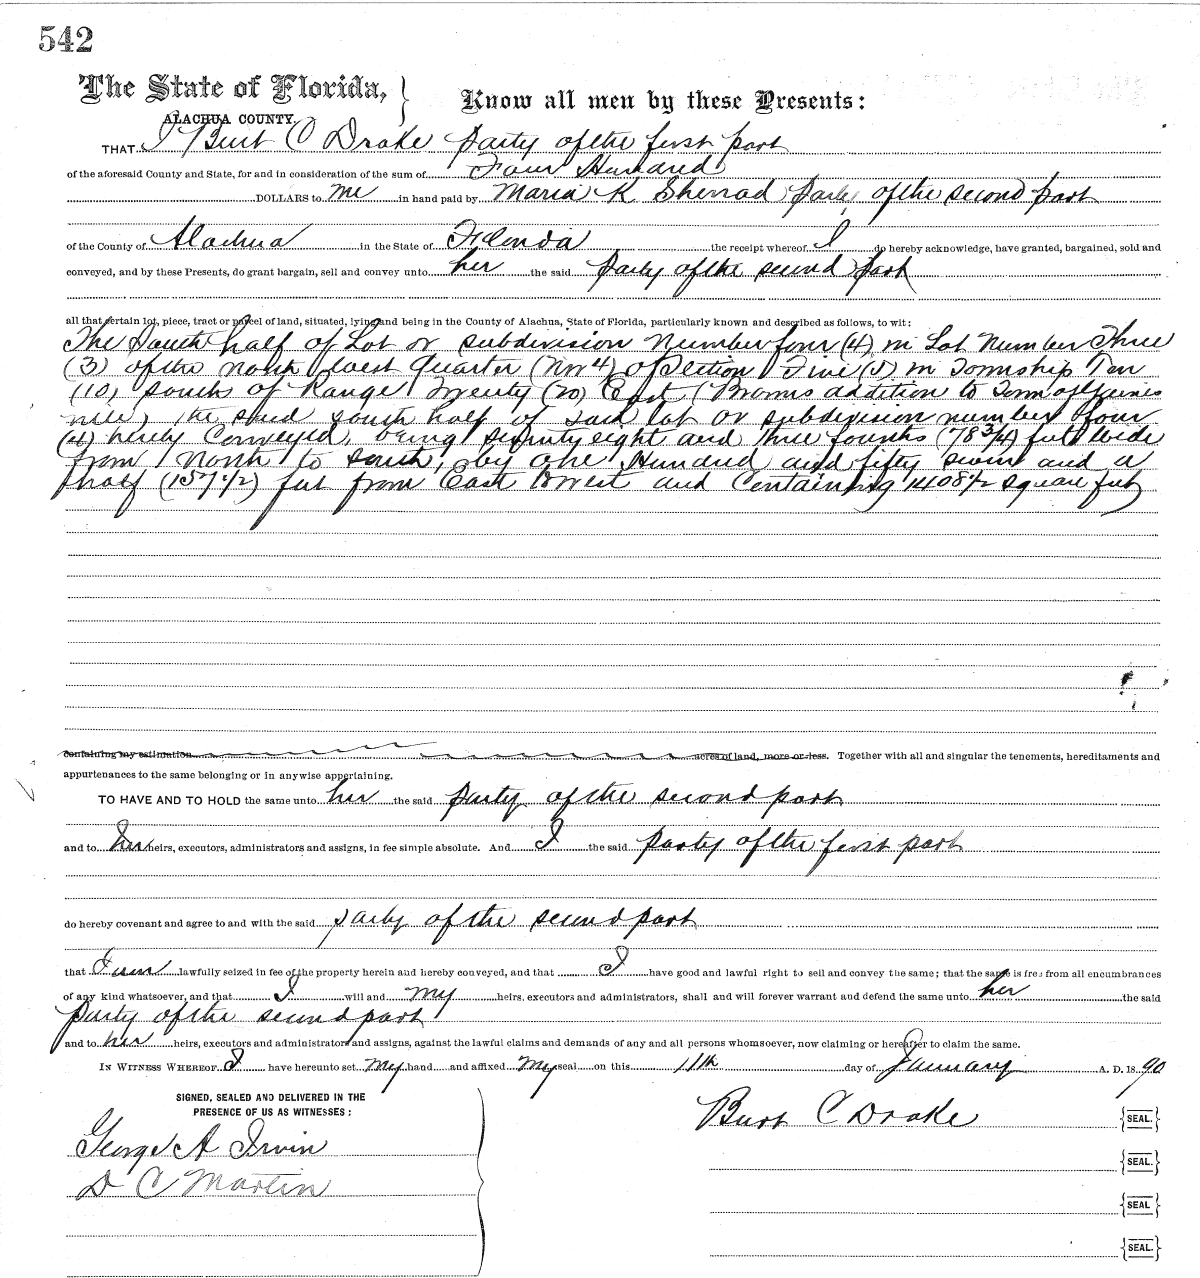 542
The State of Florida,
ALACHUA COUNTY.
Know all men by these Presents:
THAT I Burt C Drake party of the first part
of the aforesaid County and State, for and in consideration of the sum of Four Hundred
DOLLARS to me in hand paid by Maria K Sherrad party of the second part
of the County of Alachua in the State of Florida the receipt whereof I do hereby acknowledge, have granted, bargained, sold and
conveyed, and by these Presents, do grant bargain, sell and convey unto her the said party of the second part
all that certain lot, piece, tract or parcel of land, situated, lying and being in the County of Alachua, State of Florida, particularly known and described as follows, to wit:
The South half of Lot or subdivision Number four (4) in Lot Number Three
(3) of the north west quarter (NW 4) of Section Five (5) in Township Ten
(10) south of Range Twenty (20) East (Browns addition to Town of Gaines
ville) the said south half of said lot or subdivision number four
(4) hereby Conveyed, being seventy eight and three fourths (78 3/4) feet wide
from North to south, by one Hundred and fifty seven and a
half (157 1/2) feet from East West and Containing 1408 1/2 square feet
containing my estimation acres of land, more or less. Together with all and singular the tenements, hereditaments and
appurtenances to the same belonging or in anywise appertaining.
TO HAVE AND TO HOLD the same unto her the said party of the second part
and to her heirs, executors, administrators and assigns, in fee simple absolute. And I the said party of the first part
do hereby covenant and agree to and with the said party of the second part
that I am lawfully seized in fee of the property herein and hereby conveyed, and that I have good and lawful right to sell and convey the same; that the same is free from all encumbrances
of any kind whatsoever, and that I will and my heirs, executors and administrators, shall and will forever warrant and defend the same unto her the said
party of the second part
and to her heirs, executors and administrators and assigns, against the lawful claims and demands of any and all persons whomsoever, now claiming or hereafter to claim the same.
IN WITNESS WHEREOF I have hereunto set my hand and affixed my seal on this 11th day of January A. D. 1890
SIGNED, SEALED AND DELIVERED IN THE
PRESENCE OF US AS WITNESSES:
Burt C Drake SEAL.
George A Irvin
SEAL.
D C Martin
SEAL
SEAL.